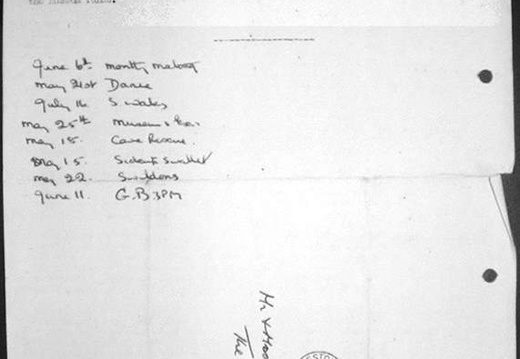 June 6th monthly
May 21st Dance
July 16 S. Wales
May 25th Museum
May 15. Cave Rescue.
May 15. Sidcot Swallet
May 22. Swildons
June 11. G.B 3PM
Mr &
The